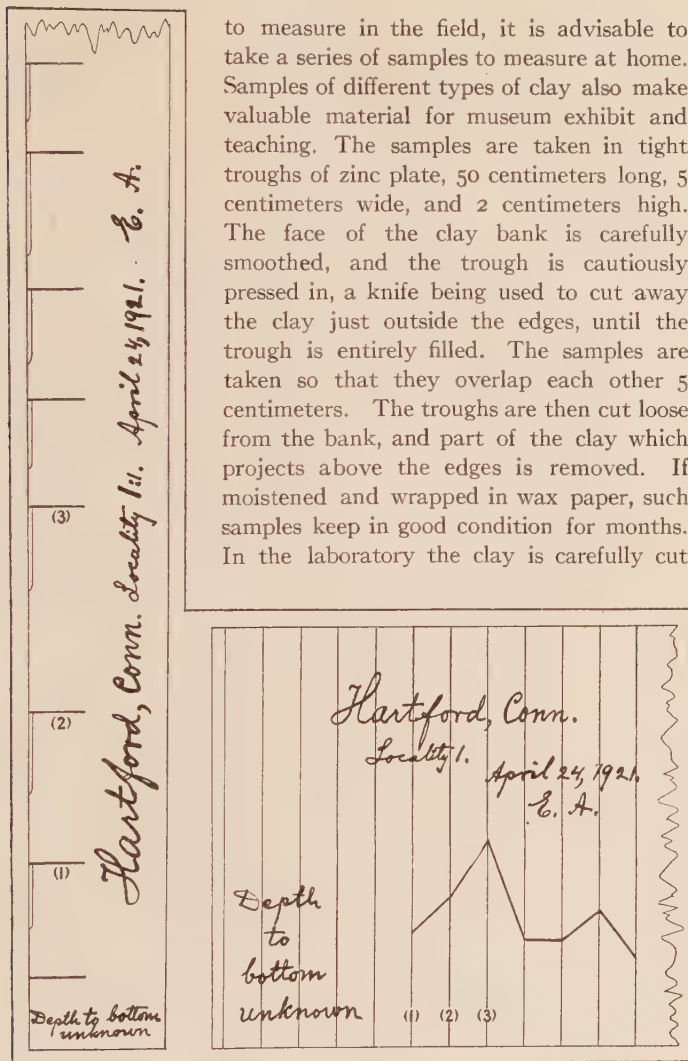 to measure in the field, it is advisable to
take a series of samples to measure at home.
Samples of different types of clay also make
valuable material for museum exhibit and
teaching. The samples are taken in tight
troughs of zinc plate, 50 centimeters long, 5
centimeters wide, and 2 centimeters high.
The face of the clay bank is carefully
smoothed, and the trough is cautiously
pressed in, a knife being used to cut away
the clay just outside the edges, until the
trough is entirely filled. The samples are
taken so that they overlap each other 5
centimeters. The troughs are then cut loose
from the bank, and part of the clay which
projects above the edges is removed. If
moistened and wrapped in wax paper, such
samples keep in good condition for months.
In the laboratory the clay is carefully cut
Hartford, Conn. Locality 1:1. April 24, 1921. E. A.
(3)
(2)
(1)
Depth to bottom
unknown
Hartford, Conn.
Locality 1.
April 24, 1921.
E. A.
Depth
to
bottom
unknown
(1) (2) (3)